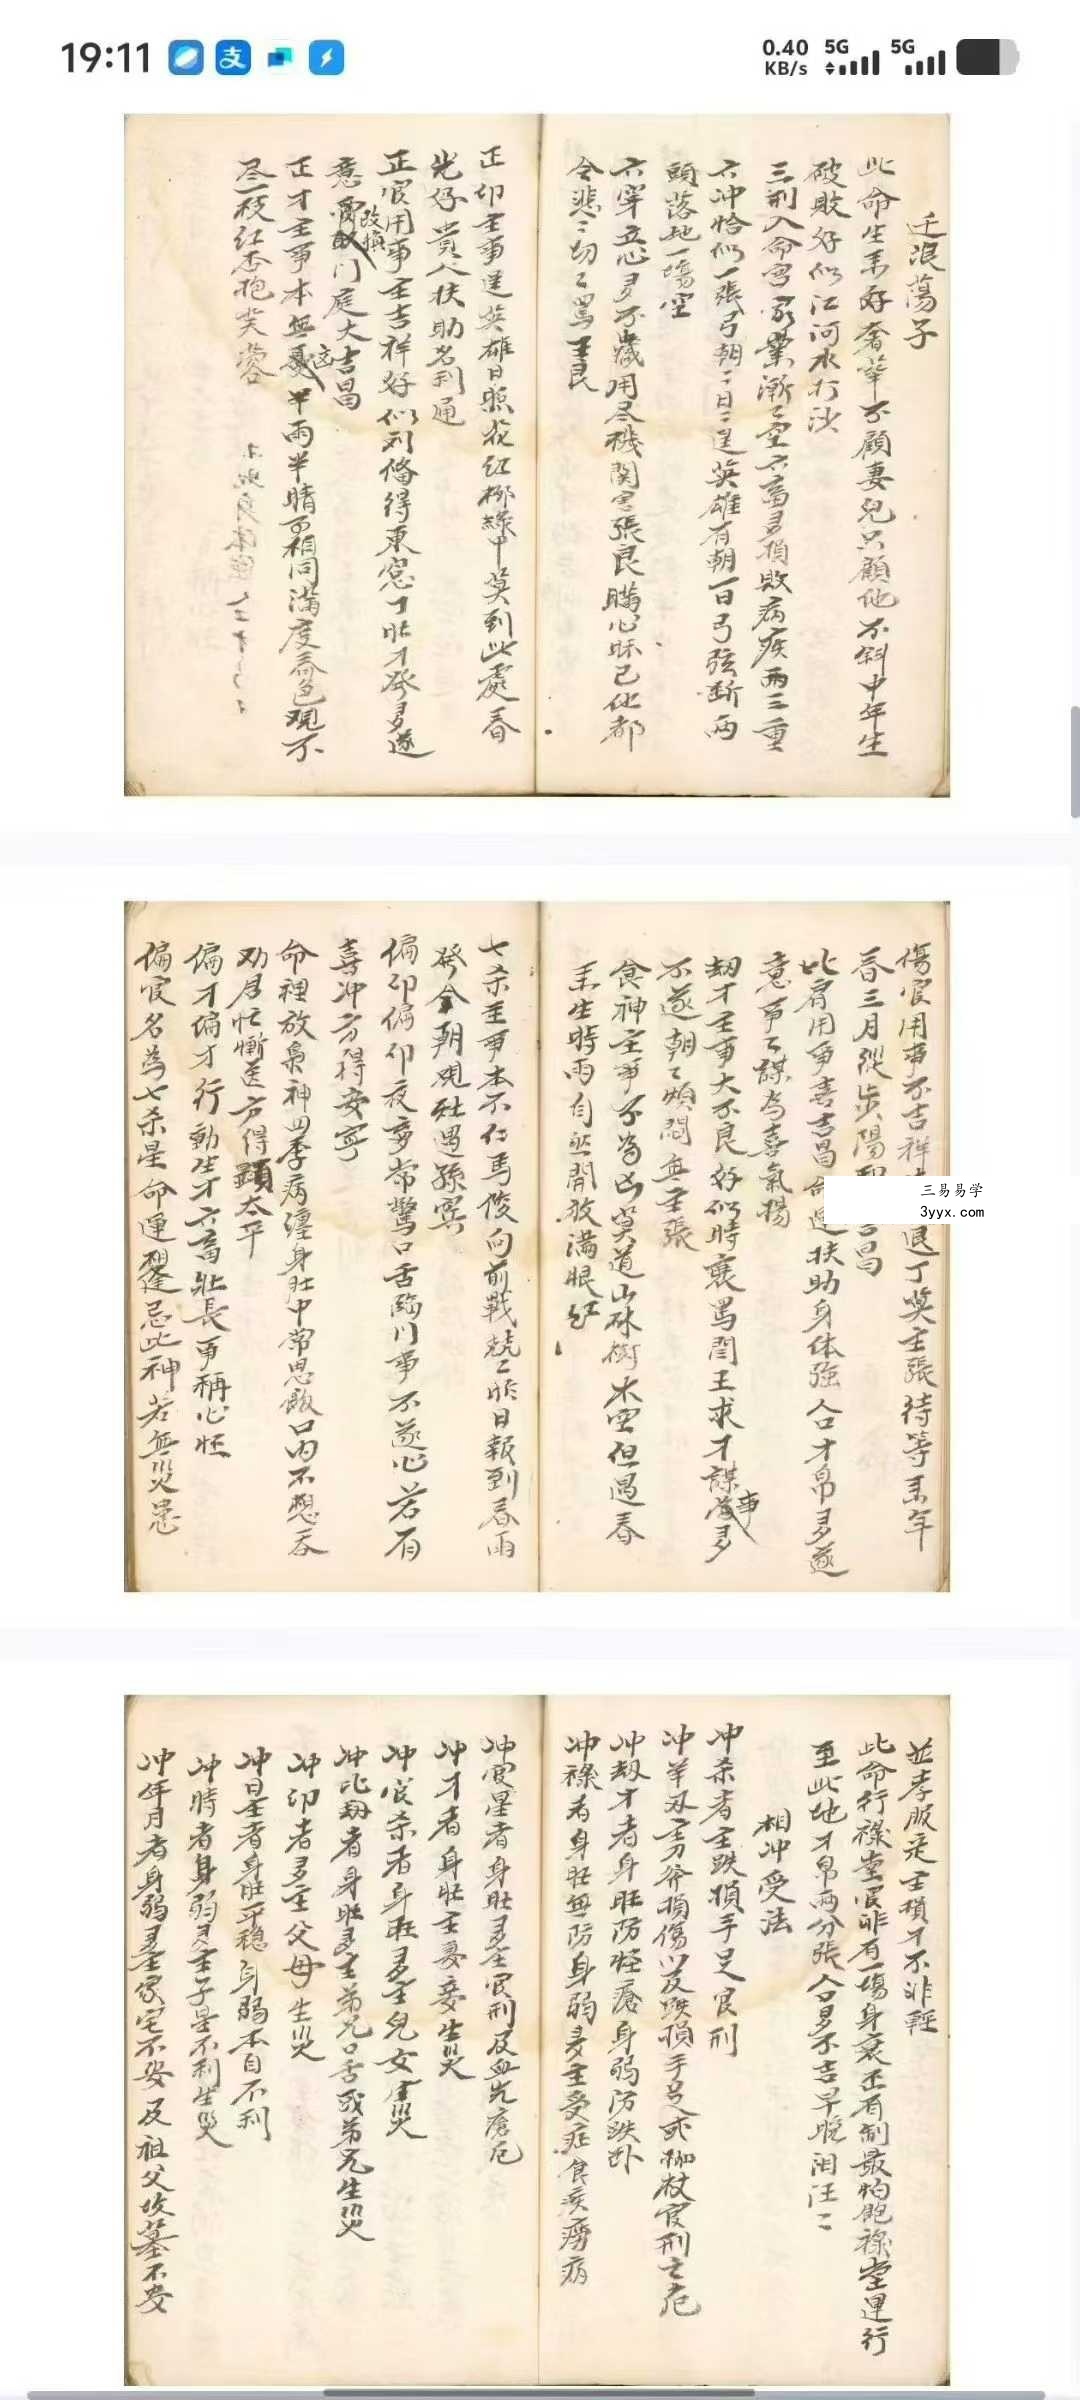 19:11
0.40 KB/s 5G 5G
迁浪蕩子
此命生来好奢華不顧妻兒只顧他不斜中年生
破敗好似江河水打沙
三刑入命宮家業漸々空六畜多損敗病疾兩三重
六冲恰似一張弓朝二日二逞英雄有朝一日弓弦断兩
頭落地一場空
六穿立心多不藏用尽機関害張良瞒心昧己他都
今悲二切々罵王良
正印主事逞英雄日照花红柳綠中莫到此處春
光好貴人扶助名利通
正官用事主吉祥好似刘俻得東窓丁旺才發多遂
意改換门庭大吉昌
正才主事本無半雨半晴不相同滿度春色观不
尽一枝红杏抱芙蓉
傷官用事不吉祥退丁莫主張待等来年
春三月陽昌
比肩用事喜吉昌命運扶助身体强人口才帛多遂
意事々謀為喜氣揚
劫才主事大不良好似時衰罵閻王求才謀事多
不遂朝々煩悶無主張
食神主事不為凶莫道山林樹木空但遇春
来生時雨自然開放滿眼红
七杀主事本不仁馬俊向前戰兢二昨日報到春雨
發今朝观灶遇孫宾
偏印偏印夜夢常驚口舌臨门事不遂心若有
喜冲方得安寧
命裡放梟神四季病纏身肚中常思飯口内不想吞
劝君忙慚送方得顕太平
偏才偏才行動生才六畜壯長事稱心怀
偏官名為七杀星命運相逢忌此神若無災患
三易易学
3yyx.com
並孝服定主損才不非輕
此命行祿堂官非有一場身衰正有制最怕飽祿堂運行
至此地才帛兩分張人口多不吉早晚泪汪二
相冲受法
冲杀者主跌損手足官刑
冲羊刃主刀斧損傷以及跌損手足或枷杖官刑之危
冲劫才者身旺防怪瘡身弱防跌卧
冲祿者身旺無防身弱多主受症食疾癆病
冲官星者身旺多主官刑及血光瘡危
冲才者身旺主妻妾生災
冲官杀者身旺多主兒女生災
冲比劫者身旺多主弟兄口舌或弟兄生災
冲印者多主父母生災
冲日主者身旺平穏身弱本自不利
冲時者身弱多主子星不利生災
冲年月者身弱多主家宅不安及祖父坟墓不安